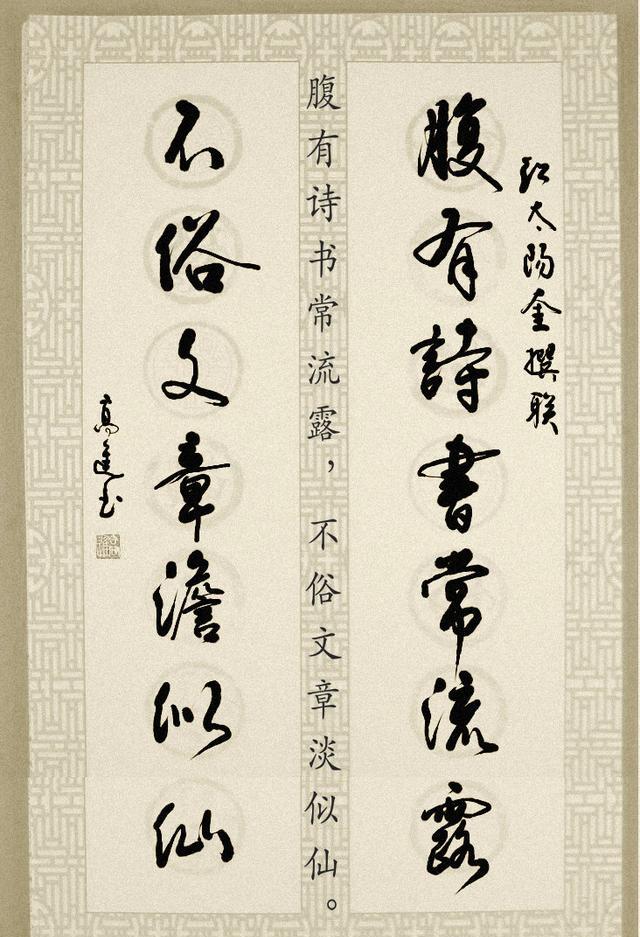 红太阳奎撰联
腹有詩書常流露
腹有诗书常流露，不俗文章淡似仙。
不俗文章澹似仙
高